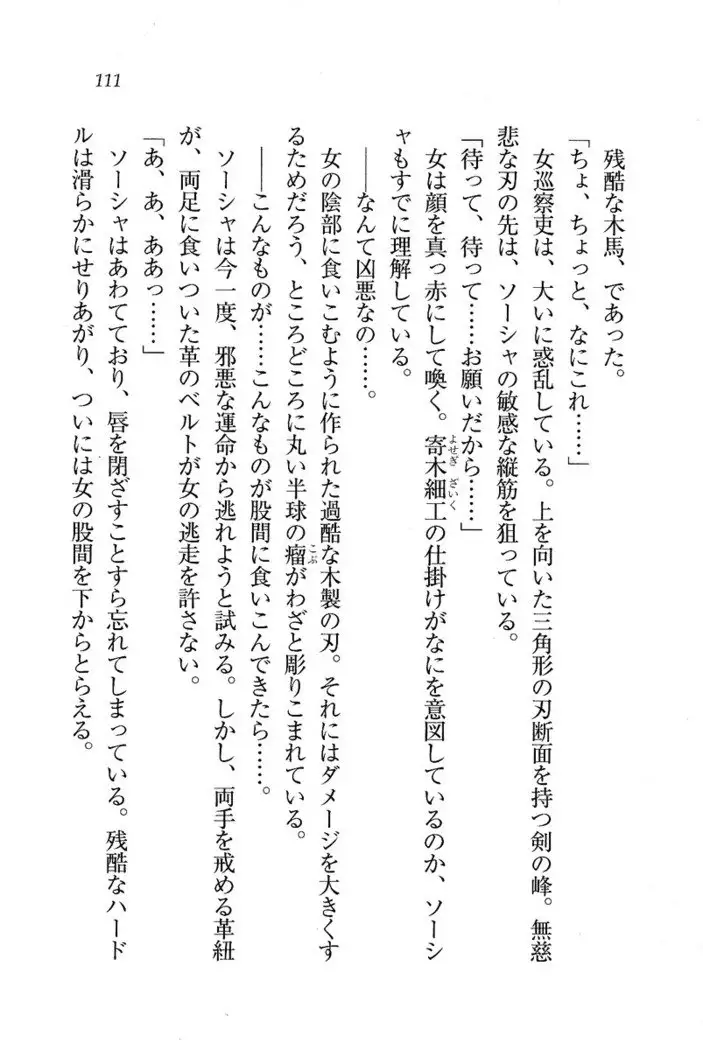 111
残酷な木馬、であった。
「ちょ、ちょっと、なにこれ……」
女巡察吏は、大いに惑乱している。上を向いた三角形の刃断面を持つ剣の峰。無慈
悲な刃の先は、ソーシャの敏感な縦筋を狙っている。
「待って、待って……お願いだから……」
女は顔を真っ赤にして喚く。寄木細工の仕掛けがなにを意図しているのか、ソーシ
ャもすでに理解している。
――なんて凶悪なの……。
女の陰部に食いこむように作られた過酷な木製の刃。それにはダメージを大きくす
るためだろう、ところどころに丸い半球の瘤がわざと彫りこまれている。
――こんなものが……こんなものが股間に食いこんできたら……。
ソーシャは今一度、邪悪な運命から逃れようと試みる。しかし、両手を戒める革紐
が、両足に食いついた革のベルトが女の逃走を許さない。
「あ、あ、ああっ……」
ソーシャはあわてており、唇を閉ざすことすら忘れてしまっている。残酷なハード
ルは滑らかにせりあがり、ついには女の股間を下からとらえる。